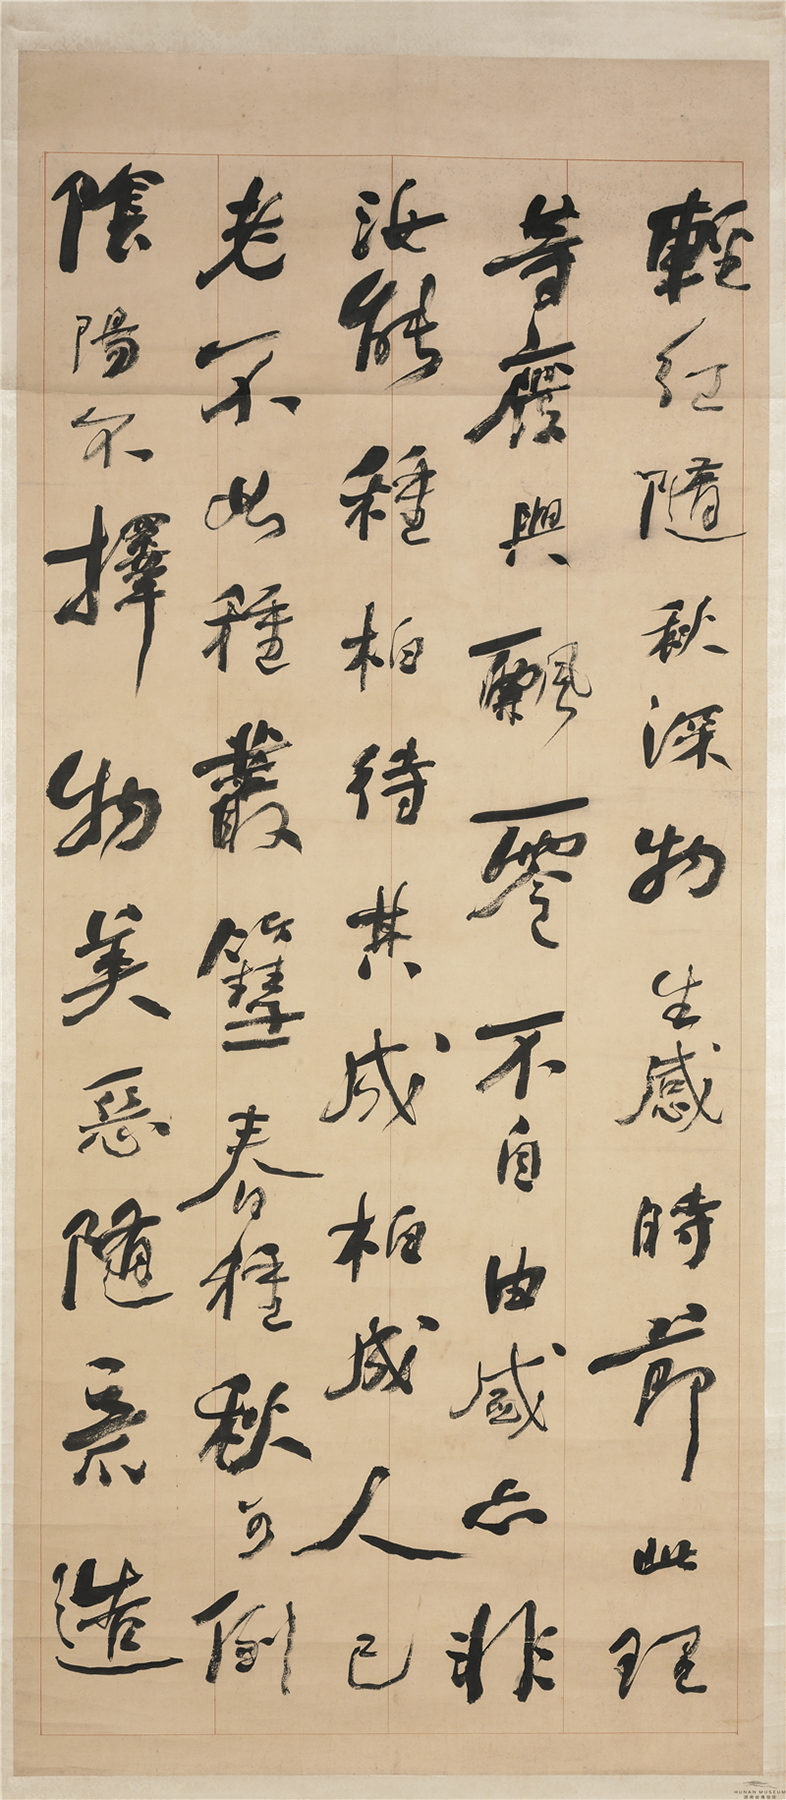 輕紅隨秋深物生感時節此理
等廢興飄零不自由盛亦非
汝能種柏待其成柏成人已
老不如種叢篲春種秋可倒
陰陽不擇物美惡隨意造
HUNAN MUSEUM